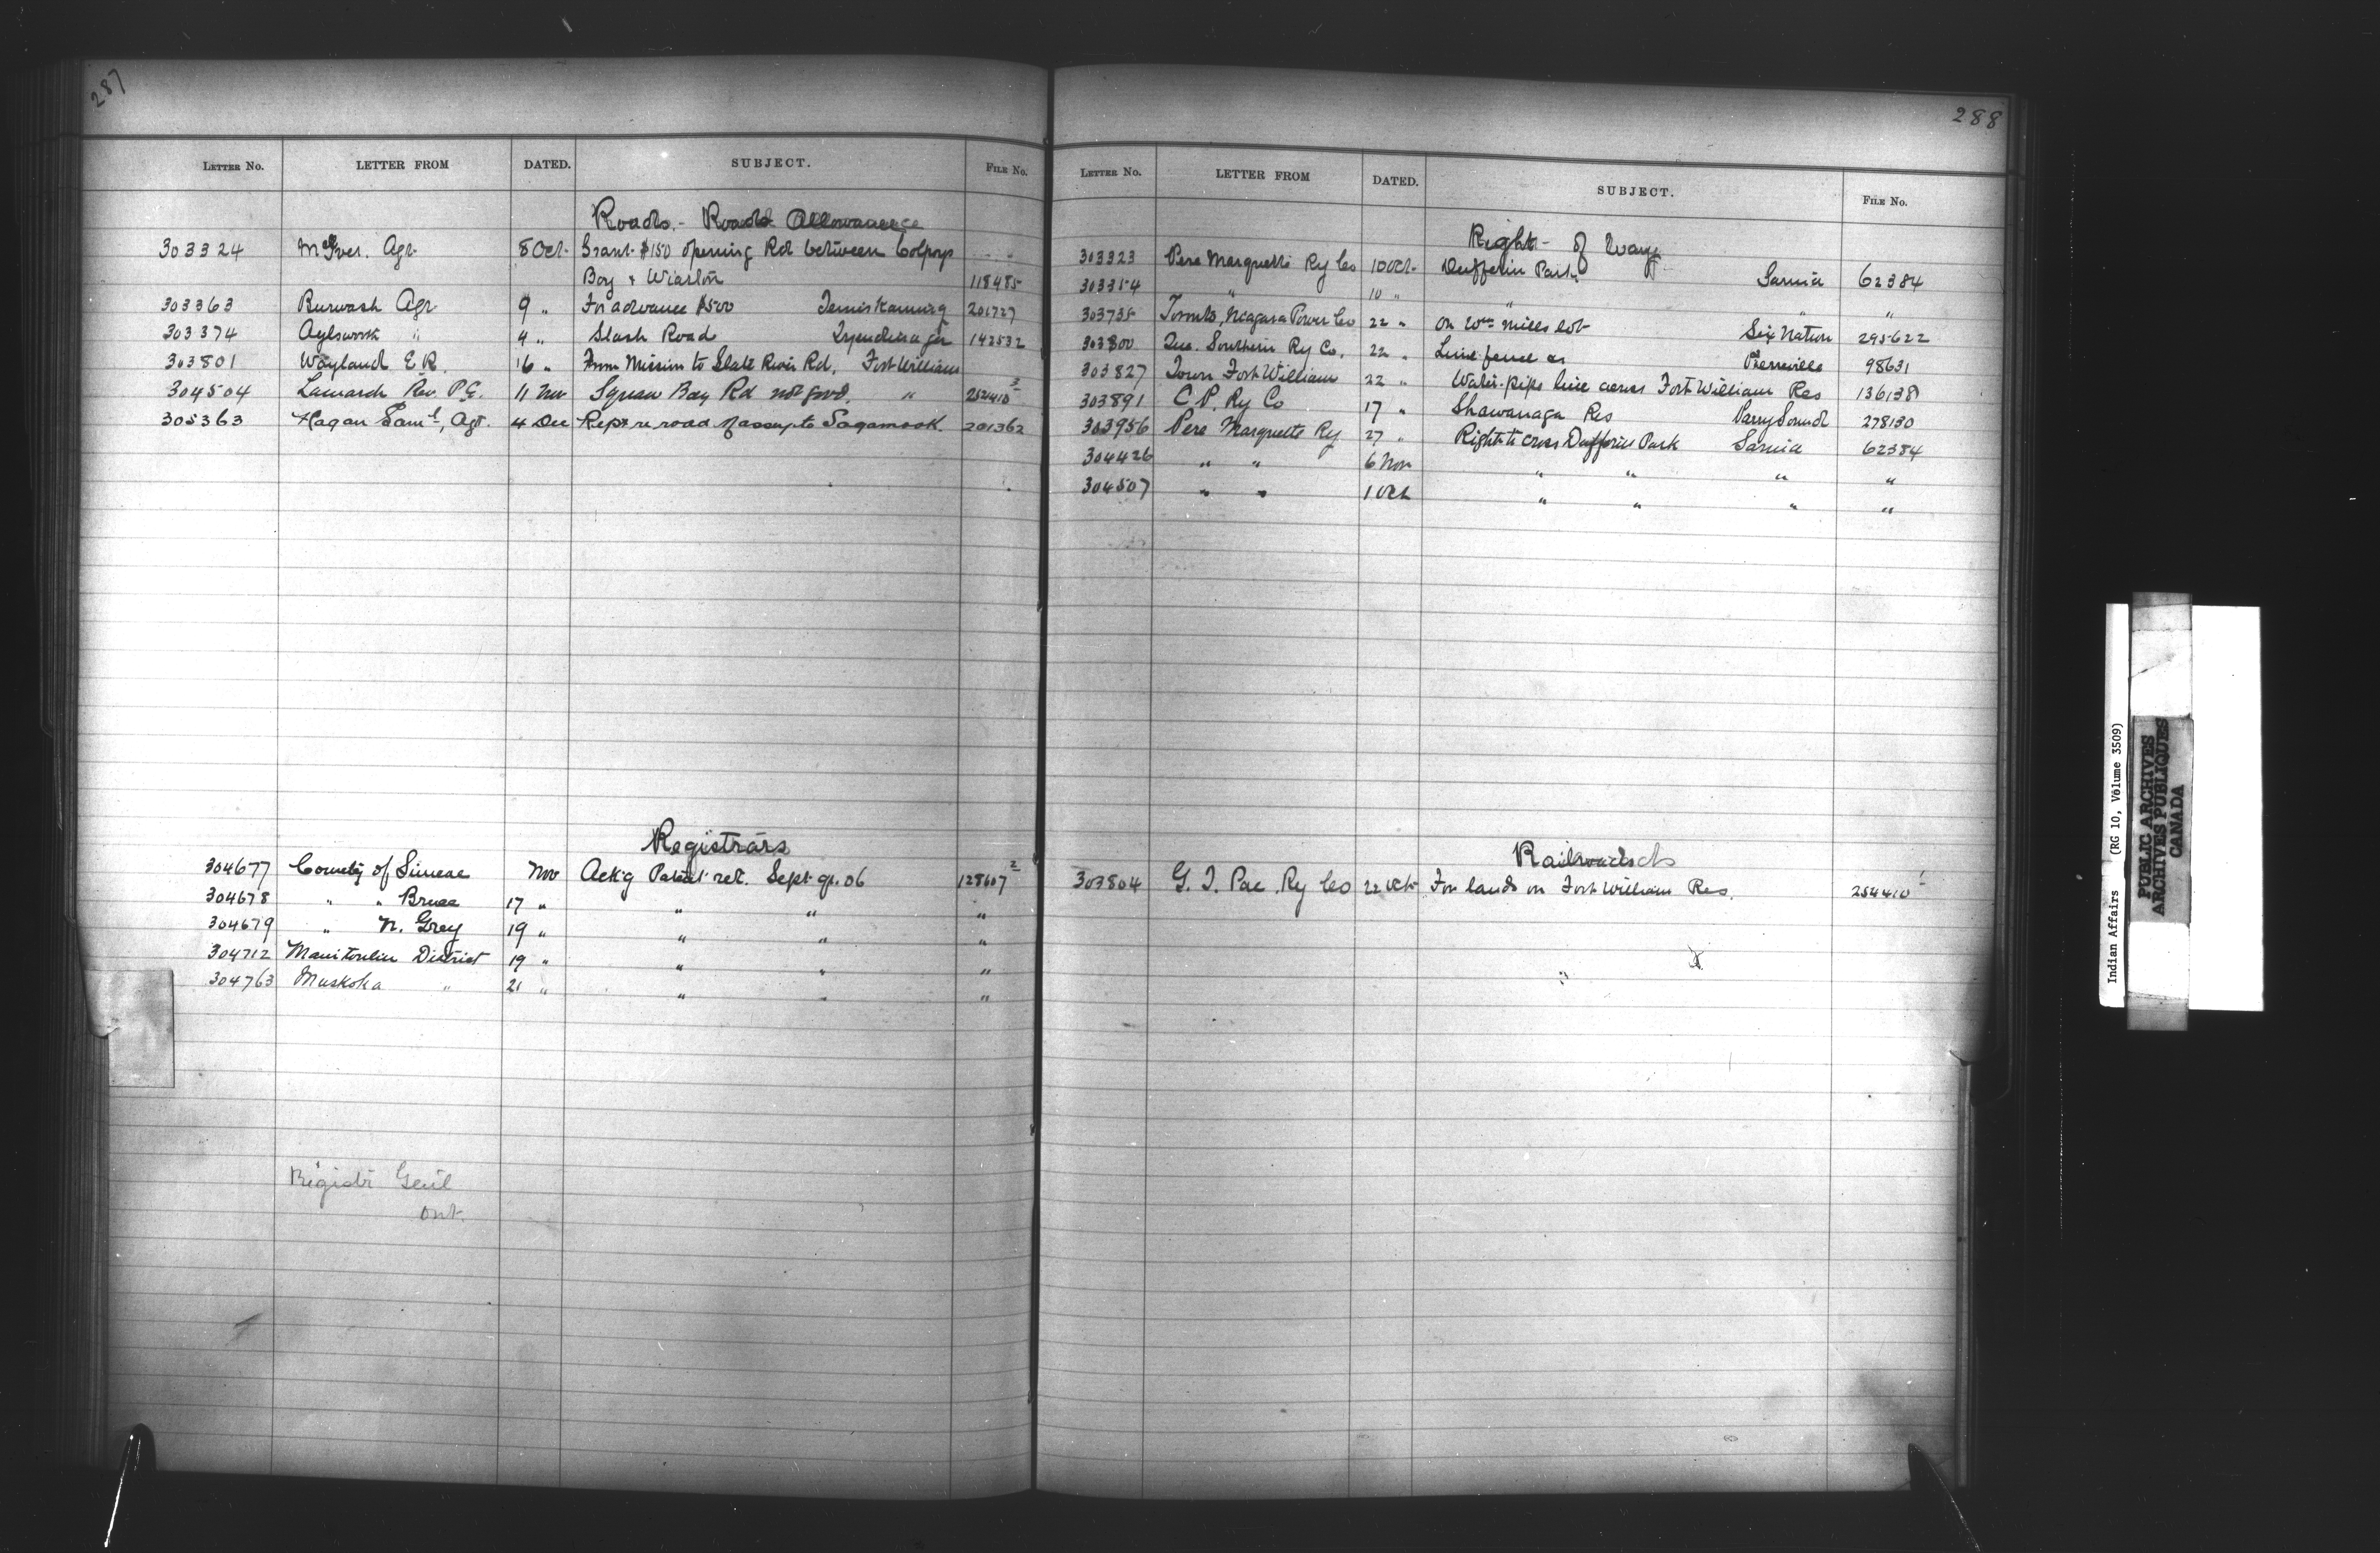 287
LETTER NO. LETTER FROM DATED. SUBJECT. FILE NO.
Roads - Road Allowance
303324 McIver. Agt. 8 Oct. Grant $150 opening Rd between Colpoys
Bay & Wiarton 118485
303363 Burwash Agt 9 " For advance $500 Temiskaming 201727
303374 Aylsworth " 9 " Slash Road Tyendinaga 142532
303801 Wayland E.R. 16 " From Mission to Slate River Rd. Fort William
304504 Lamarch Rev. P.E. 11 Nov Squaw Bay Rd not good. " 254410 3
305363 Hagan Saml, Agt. 4 Dec Rept re road of assny to Sagamook. 201362
Registrars
304677 County of Simcoe Nov Ack'g Patent ret. Sept. qr. 06 128607 2
304678 " " Bruce 17 " " " "
304679 " N. Grey 19 " " " "
304712 Manitoulin District 19 " " " "
304763 Muskoka " 21 " " " "
Registr Genl
Ont.
288
LETTER NO. LETTER FROM DATED. SUBJECT. FILE NO.
Right - of Way
303323 Pere Marquette Ry Co 10 Oct. Dufferin Park Sarnia 62384
303354 " 10 " " " "
303735 Toronto, Niagara Power Co 22 " on Wm Mills lot Six Nation 295622
303800 Que. Southern Ry Co. 22 " Line fence on Pierreville 98631
303827 Town Fort William 22 " Water-pipe line across Fort William Res 136138
303891 C.P. Ry Co 17 " Shawanaga Res Parry Sound 278130
303956 Pere Marquette Ry 27 " Right to cross Dufferin Park Sarnia 62384
304426 " " 6 Nov " " " "
304507 " " 1 Oct " " " "
Railroads
303804 G. T. Pac. Ry Co 22 Oct. For lands on Fort William Res. 254410 1
Indian Affairs (RG 10, Volume 3509)
PUBLIC ARCHIVES
ARCHIVES PUBLIQUES
CANADA